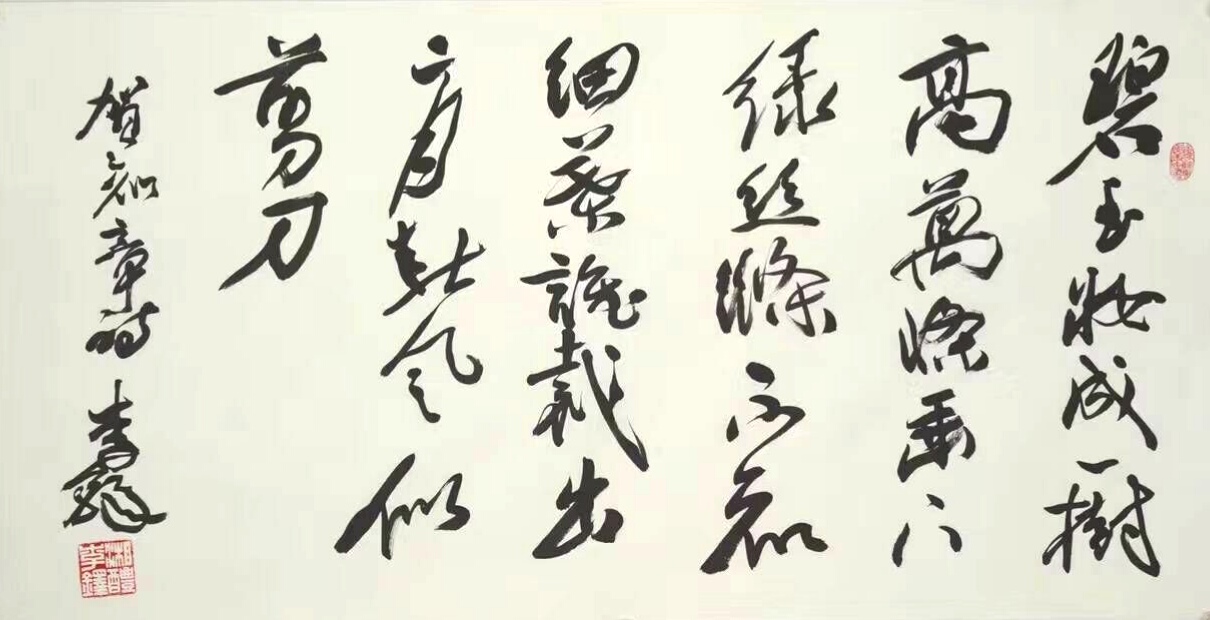 碧玉妝成一樹
高萬條垂下
綠絲縧不知
細葉誰裁出
二月春風似
剪刀
賀知章詩 李鐸
湘醴李鐸